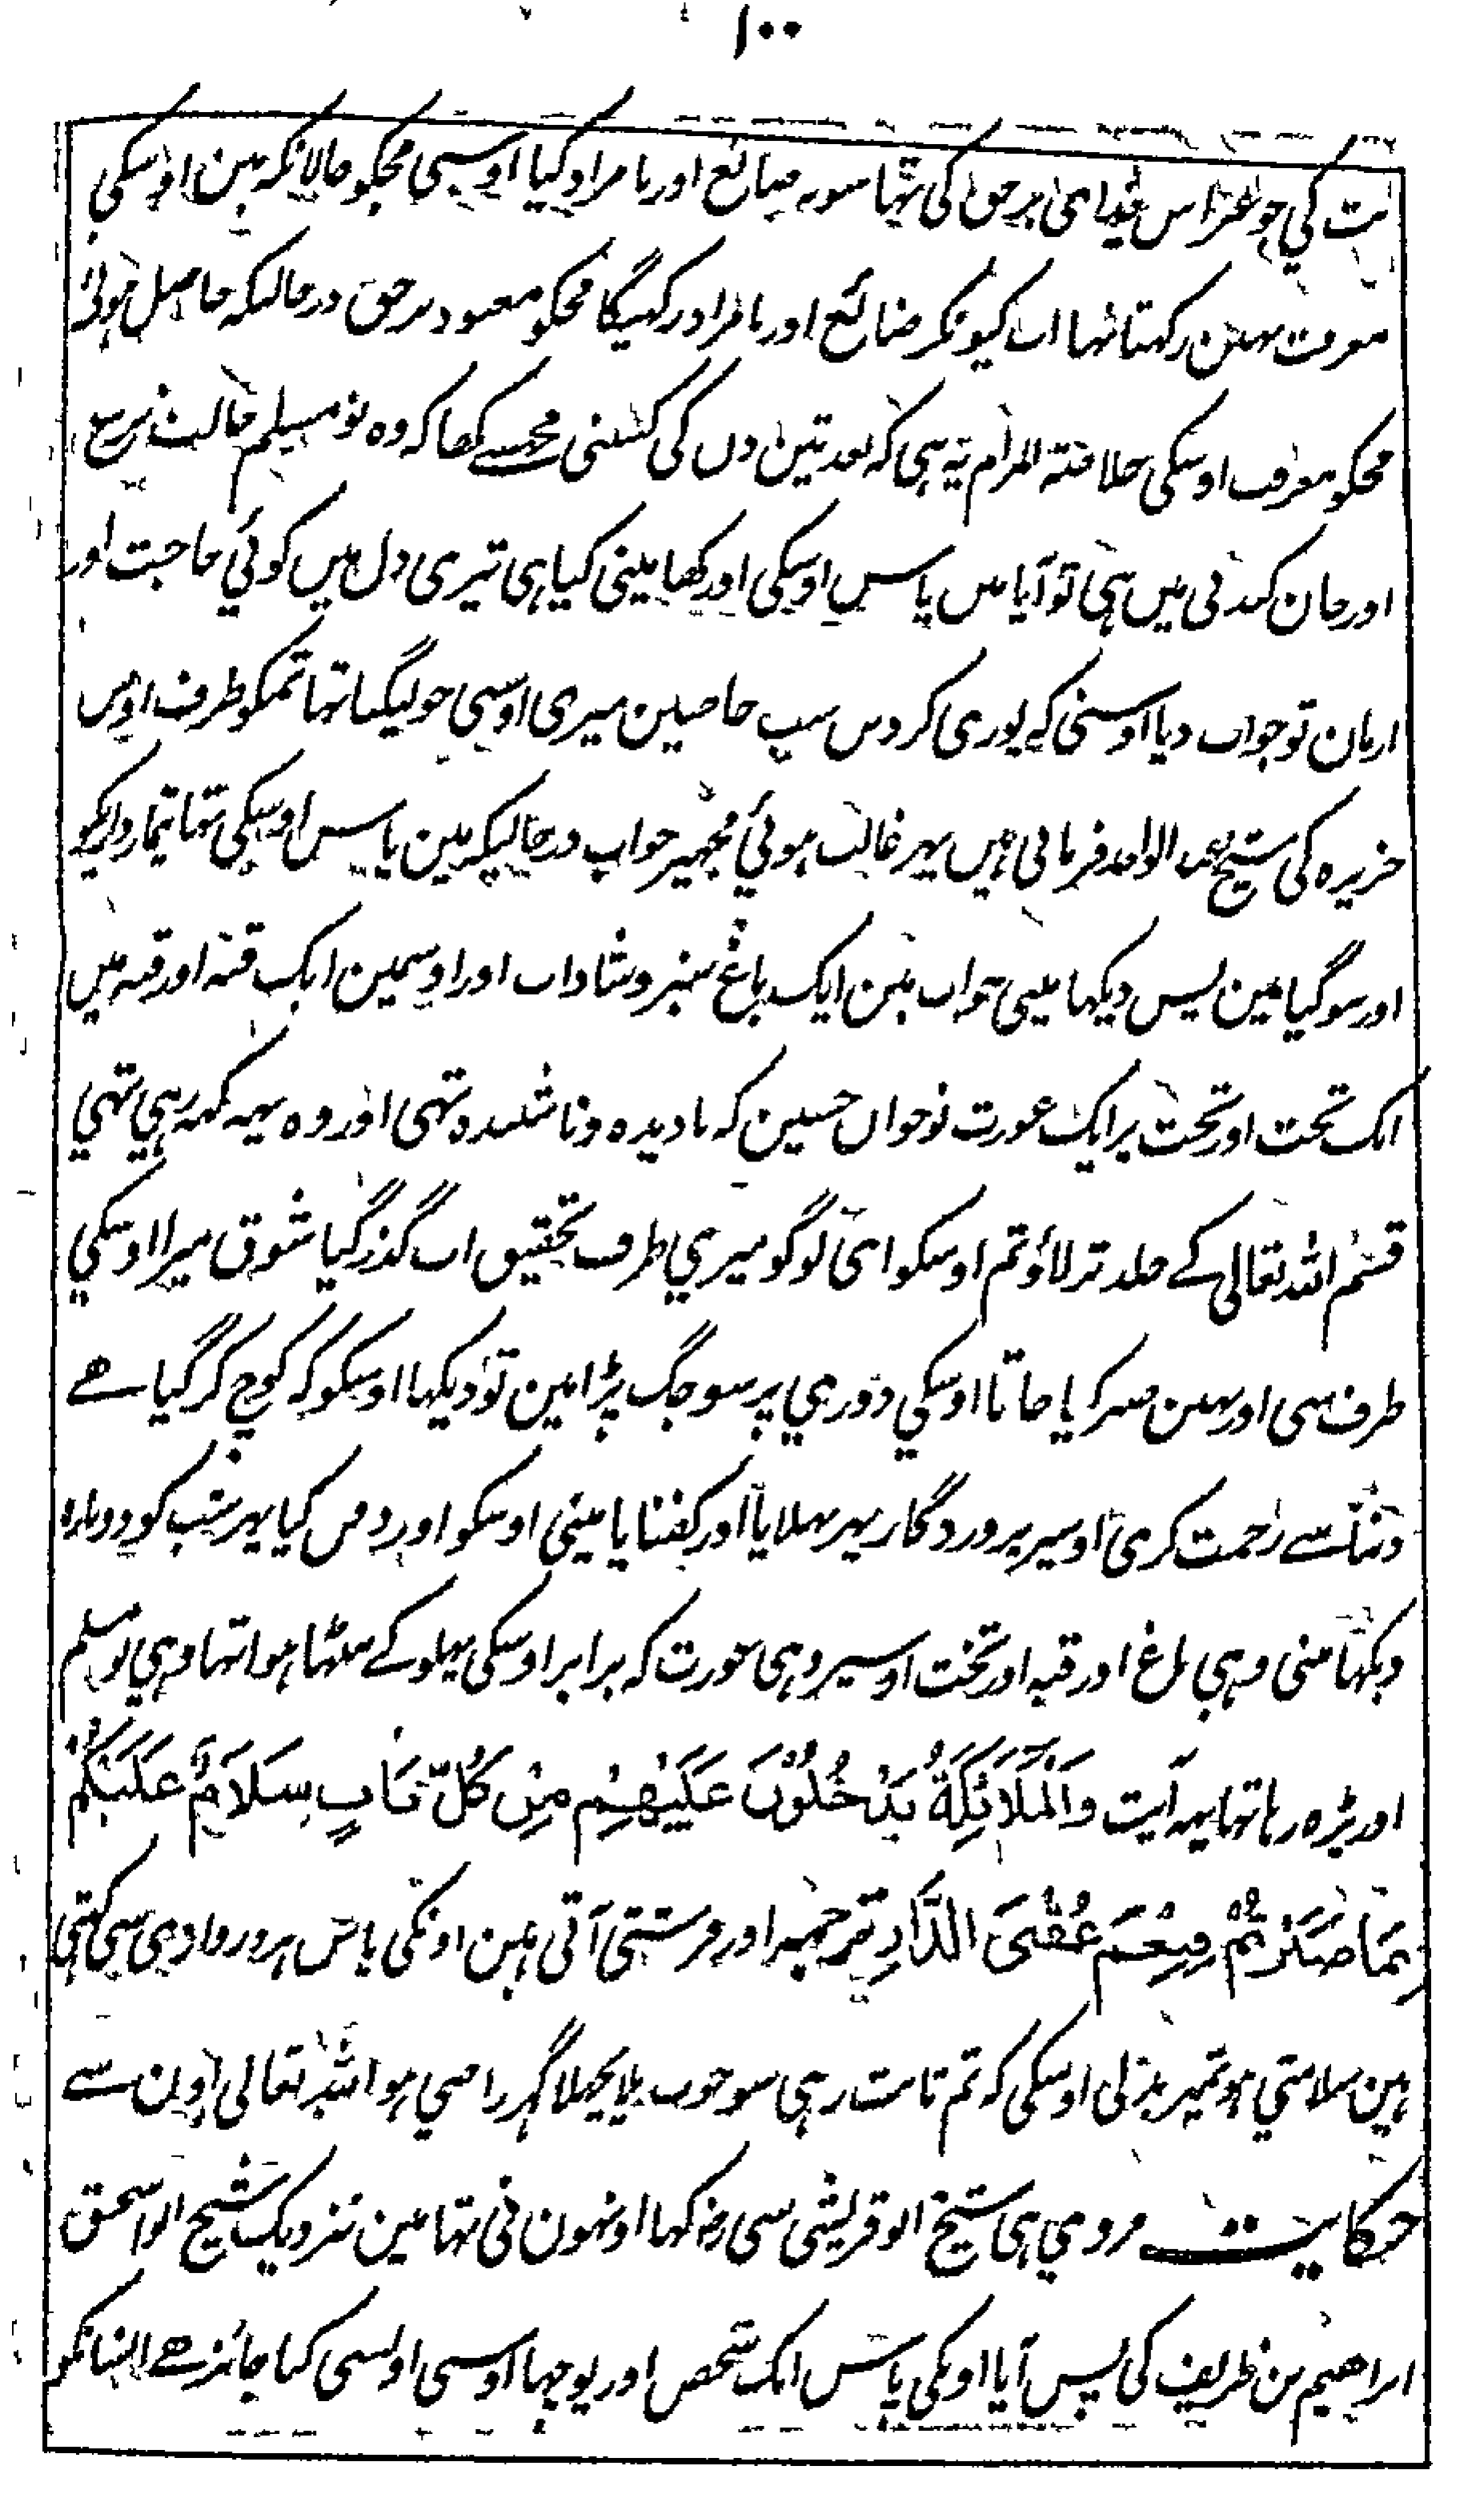 ۱۰۰
بت کي جو غیر اس خدای برحق کی تہا سونہ ضائع اور نامراد کیا اوسی مجکو حالانکہ مین اوسکی
معرفت نہین رکہتا تہا اب کیونکر ضائع اور نامراد رکہیگا مجکو معبود برحق درحالیکہ حاصل ہوئی
مجکو معرفت اوسکی خلاصۃ المرام یہ ہی کہ بعد تین دن کی کسنی مجھسے کھا کہ وہ نو مسلم حالت نزع
اور جان کندنی میں ہی تو آیا میں پاس اوسکی اور کھا مینی کیا ہی تیری دل میں کوئي حاجت اور
ارمان تو جواب دیا اوسنی کے پوری کر دیں سب حاجتین میری اوسی جو لیگیا تہا تمکو طرف اوس
جزیرہ کی شیخ عبد الواحد فرماتی ہیں پہر غالب ہوئي مجہپر خواب درحالیکہ مین پاس اوسکی تہا تیمارداریکو
اور سوگیا مین پس دیکہا مینی خواب مین ایک باغ سبز و شاداب اور اوسمین ایک قبہ اور قبہ میں
ایک تخت اور تخت پر ایک عورت نوجوان حسین کہ نادیدہ و ناشنیدہ تہی اور وہ یہہ کہہ رہي تہي
قسم اللہ تعالی کے جلد تر لاؤ تم اوسکو ای لوگو میري طرف تحقیق اب گذر گیا شوق میرا اوسکي
طرف سی اور نہین صبر کیا جاتا اوسکي دوري پر سو جگ پڑا مین تو دیکہا اوسکو کہ کوچ کر گیا ھے
دنیا سے رحمت کری اوسپر پروردگار پہر نہلایا اور کفنایا مینی اوسکو اور دفن کیا پہر شب کو دوبارہ
دیکہا مینی وہي باغ اور قبہ اور تخت اوسپر وہی عورت کہ برابر اوسکی پہلو کے بیٹہا ہوا تہا وہي نو مسلم
اور پڑہ رہا تہا یہہ آیت وَالْمَلَائِكَةُ يَدْخُلُوْنَ عَلَيْهِمْ مِنْ كُلِّ بَابٍ سَلَامٌ عَلَيْكُمْ
بِمَا صَبَرْتُمْ فَنِعْمَ عُقْبَى الدَّارِ ترجمہ اور فرشتی آتی ہین اونکی پاس ہر دروازی سی کہتی
ہین سلامتي ہو تمپر بدلی اوسکی کہ تم ثابت رہی سو خوب ملا پچھلا گہر راضي ہو اللہ تعالی اون سے
حکایت مروي ہی شیخ ابو قریشی سی رض کہا اونہون نی تہا مین نزدیک شیخ ابو اسحق
ابراھیم بن ظریف کی پس آیا اونکی پاس ایک شخص اور پوچہا اوسی اونسی کیا جائز ھے انسانکو